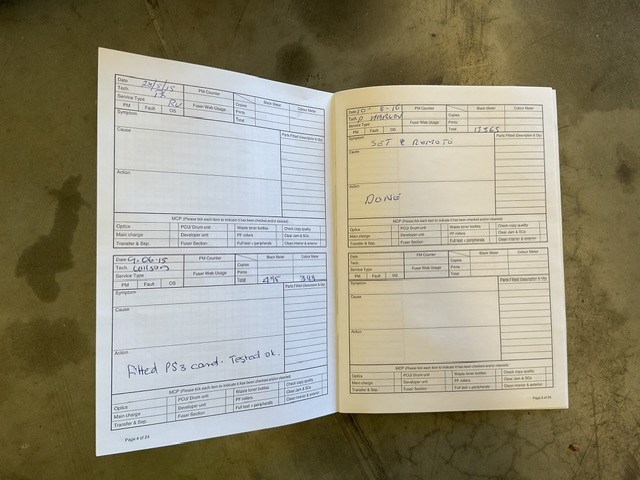 Date 28/5/15 PM Counter Black Meter Colour Meter
Tech. Copies
Service Type RW Fuser Web Usage Prints
PM Fault OS Total
Symptom Parts Fitted (Description & Qty)
Cause
Action
MCP (Please tick each item to indicate it has been checked and/or cleaned)
Optics PCU/ Drum unit Waste toner bottles Check copy quality
Main charge Developer unit PF rollers Clear Jam & SCs
Transfer & Sep. Fuser Section Full test + peripherals Clean interior & exterior
Date 9.06.15 PM Counter Black Meter Colour Meter
Tech. Copies
Service Type Fuser Web Usage Prints
PM Fault OS Total 495 344
Symptom Parts Fitted (Description & Qty)
Cause
Action
Fitted PS3 card. Tested ok.
MCP (Please tick each item to indicate it has been checked and/or cleaned)
Optics PCU/ Drum unit Waste toner bottles Check copy quality
Main charge Developer unit PF rollers Clear Jam & SCs
Transfer & Sep. Fuser Section Full test + peripherals Clean interior & exterior
Page 4 of 24
Date 10- 8-16 PM Counter Black Meter Colour Meter
Tech. Copies
Service Type Fuser Web Usage Prints
PM Fault OS Total 17365
Symptom Parts Fitted (Description & Qty)
SET
Cause
Action
DONE
MCP (Please tick each item to indicate it has been checked and/or cleaned)
Optics PCU/ Drum unit Waste toner bottles Check copy quality
Main charge Developer unit PF rollers Clear Jam & SCs
Transfer & Sep. Fuser Section Full test + peripherals Clean interior & exterior
Date PM Counter Black Meter Colour Meter
Tech. Copies
Service Type Fuser Web Usage Prints
PM Fault OS Total
Symptom Parts Fitted (Description & Qty)
Cause
Action
MCP (Please tick each item to indicate it has been checked and/or cleaned)
Optics PCU/ Drum unit Waste toner bottles Check copy quality
Main charge Developer unit PF rollers Clear Jam & SCs
Transfer & Sep. Fuser Section Full test + peripherals Clean interior & exterior
Page 5 of 24